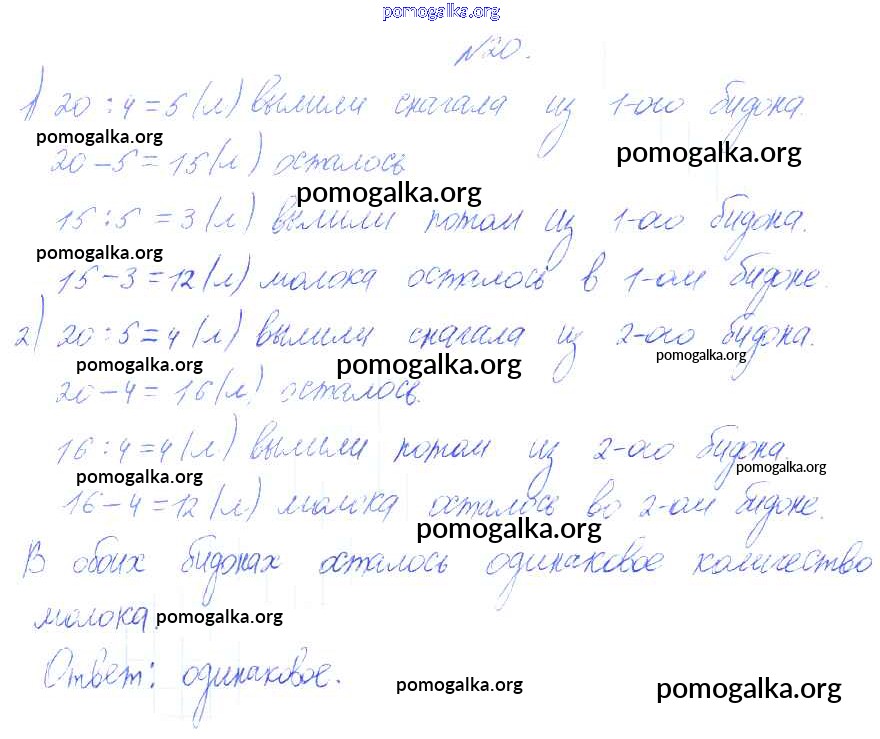 pomogalka.org
№20.
1) 20 : 4 = 5 (л) вылили сначала из 1-ого бидона.
pomogalka.org
20 – 5 = 15 (л) осталось
pomogalka.org
pomogalka.org
15 : 5 = 3 (л) вылили потом из 1-ого бидона.
pomogalka.org
15 – 3 = 12 (л) молока осталось в 1-ом бидоне.
2) 20 : 5 = 4 (л) вылили сначала из 2-ого бидона.
pomogalka.org
pomogalka.org
pomogalka.org
20 – 4 = 16 (л) осталось.
16 : 4 = 4 (л) вылили потом из 2-ого бидона.
pomogalka.org
pomogalka.org
16 – 4 = 12 (л) молока осталось во 2-ом бидоне.
pomogalka.org
В обоих бидонах осталось одинаковое количество
молока.
pomogalka.org
Ответ: одинаковое.
pomogalka.org
pomogalka.org